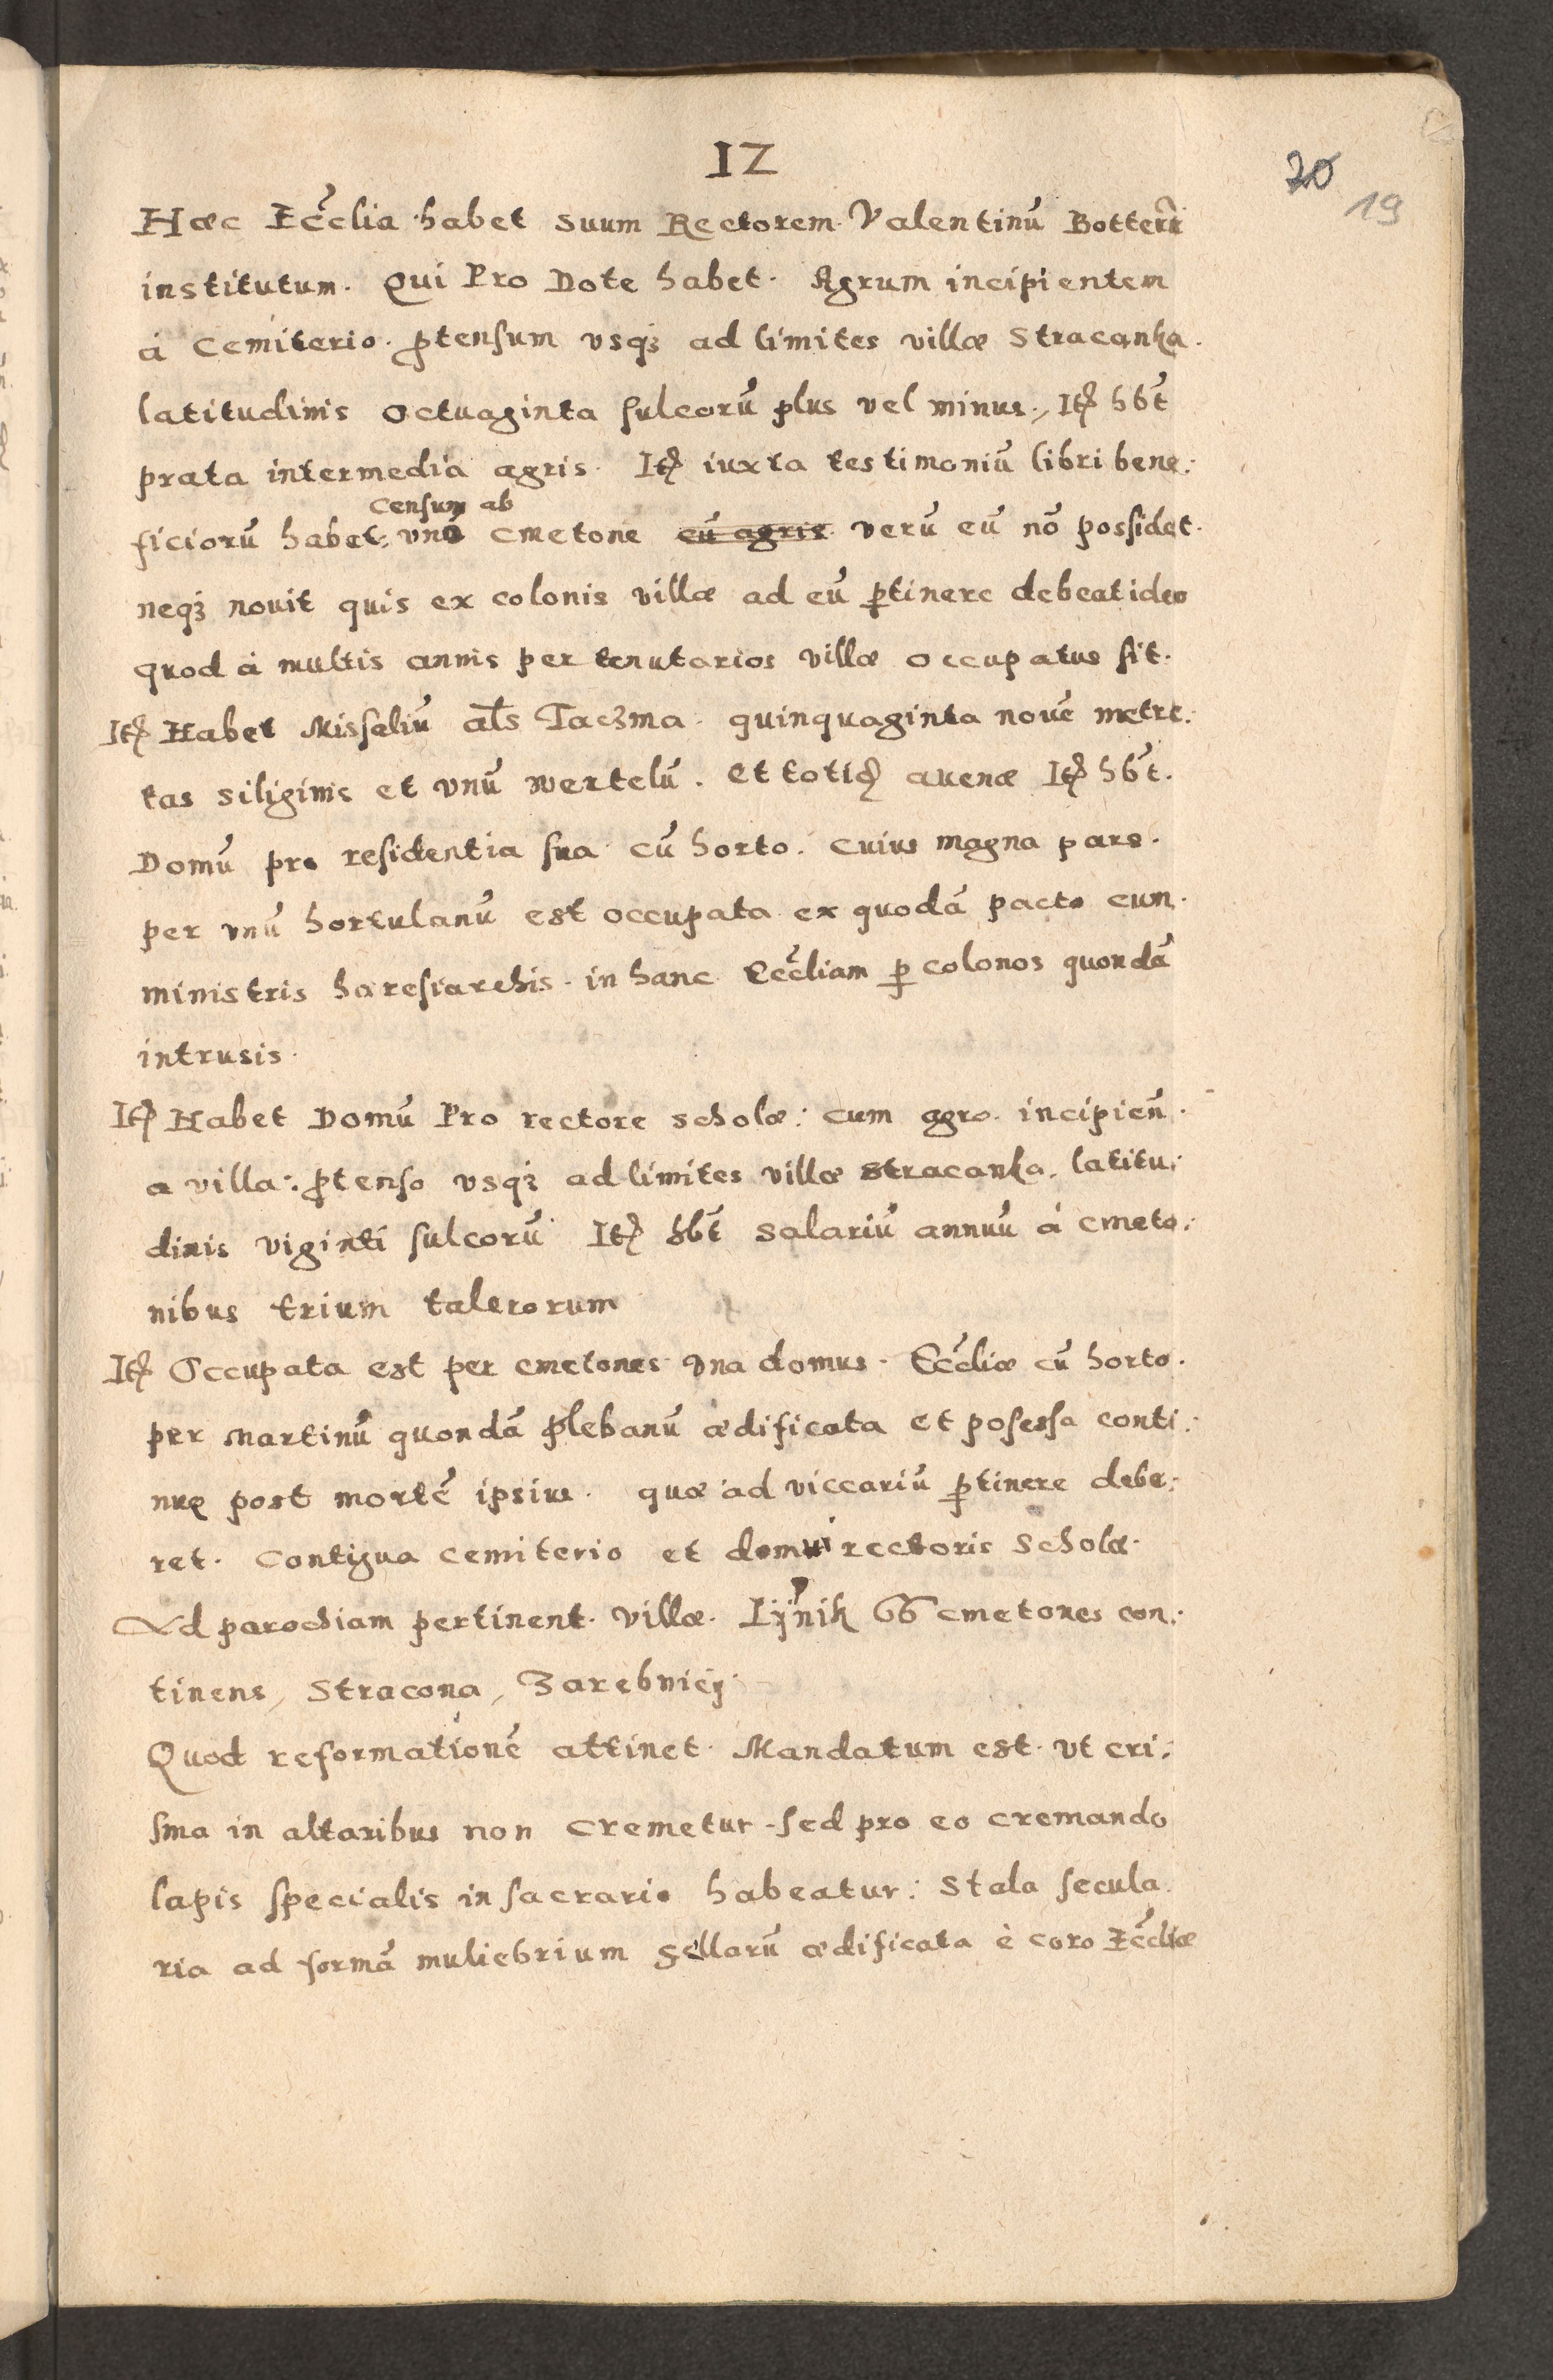 12
20
19
Hæc Ecclia habet suum Rectorem Valentinū
institutum. Qui Pro Dote habet. Agrum incipientem
á Cemiterio. ꝓtensum vsqꝫ ad limites villæ Stracanka.
latitudinis octuaginta sulcorū plus vel minus., Itē hbt
prata intermedia agris. Itē iuxta testimoniū libri bene:
Censum ab
ficiorū habet, vno cmetone cū agris verū eū nō possidet.
neqꝫ nouit quis ex colonis villæ ad eū ꝑtinere debeat ideo
quod á multis annis per tenutarios villæ occupatus sit.
Itē Habet Missaliū als Taczma. quinquaginta nouē metre:
tas siliginis et vnū wertelū. et totidē auenæ Itē hbt.
Domū pro residentia sua cū horto. cuius magna pars.
per vnū hortulanū est occupata ex quodā pacto cum.
ministris hæresiarchis. in hanc Eccliam ꝑ colonos quondā
intrusis.
Itē Habet Domū Pro rectore scholæ: cum agro. incipien̄.
a villa: ꝓtenso vsqꝫ ad limites villæ Stracanka. latitu:
dinis viginti sulcorū Itē hbt salariū annuū á cmeto:
nibus trium talerorum
Itē Occupata est per cmetones vna domus. Eccliæ cū horto.
per Martinū quondā plebanū ædificata et posessa conti:
nue post mortē ipsius. quæ ad viccariū ꝑtinere debe:
ret. Contigua cemiterio et domui rectoris Scholæ.
Ad parochiam pertinent. villæ. 66 cmetones con:
tinens, Stracona, Zarebnicz.
Quod reformationē attinet. Mandatum est. vt cri:
sma in altaribus non cremetur. sed pro eo cremando
lapis specialis in sacrario habeatur: Stala secula
ria ad formā muliebrium sellarū ædificata è coro Eccliæ